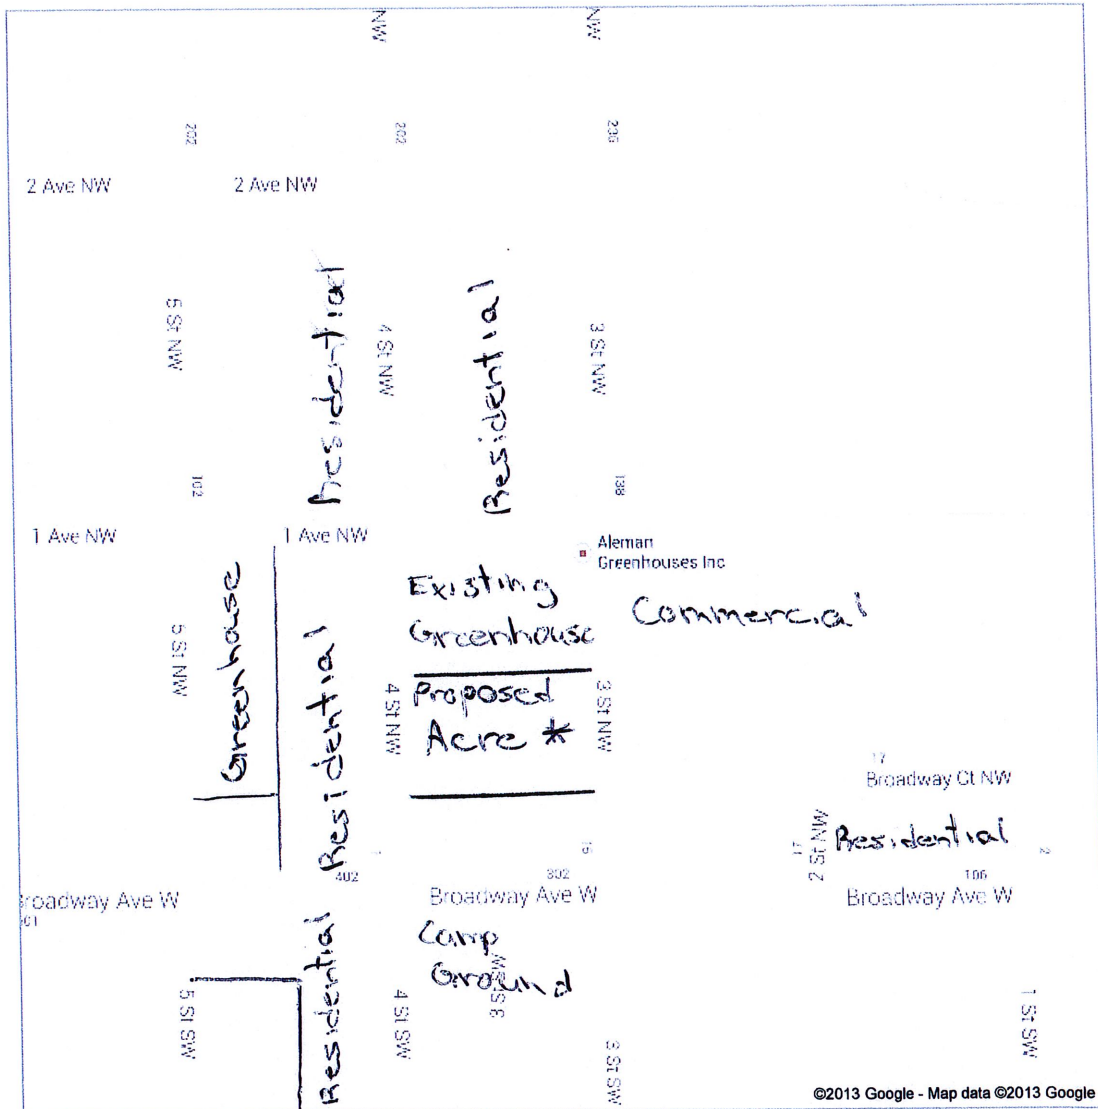 NW
NW
202
202
236
2 Ave NW
2 Ave NW
5 St NW
Residential
4 St NW
Residential
3 St NW
102
138
1 Ave NW
1 Ave NW
Aleman
Greenhouses Inc
Greenhouse
5 St NW
Residential
Existing
Greenhouse
Commercial
4 St NW
Proposed
Acre *
3 St NW
17
Broadway Ct NW
15
21
2 St NW
Residential
2
402
302
106
roadway Ave W
Broadway Ave W
Broadway Ave W
Residential
Camp
Ground
5 St SW
4 St SW
3 St SW
1 St SW
©2013 Google - Map data ©2013 Google